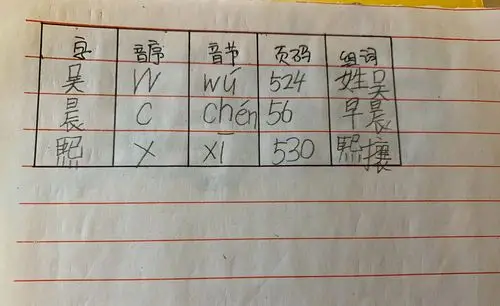 字 音序 音节 页码 组词
吴 W wú 524 姓吴
晨 C chén 56 早晨
熙 X xī 530 熙攘